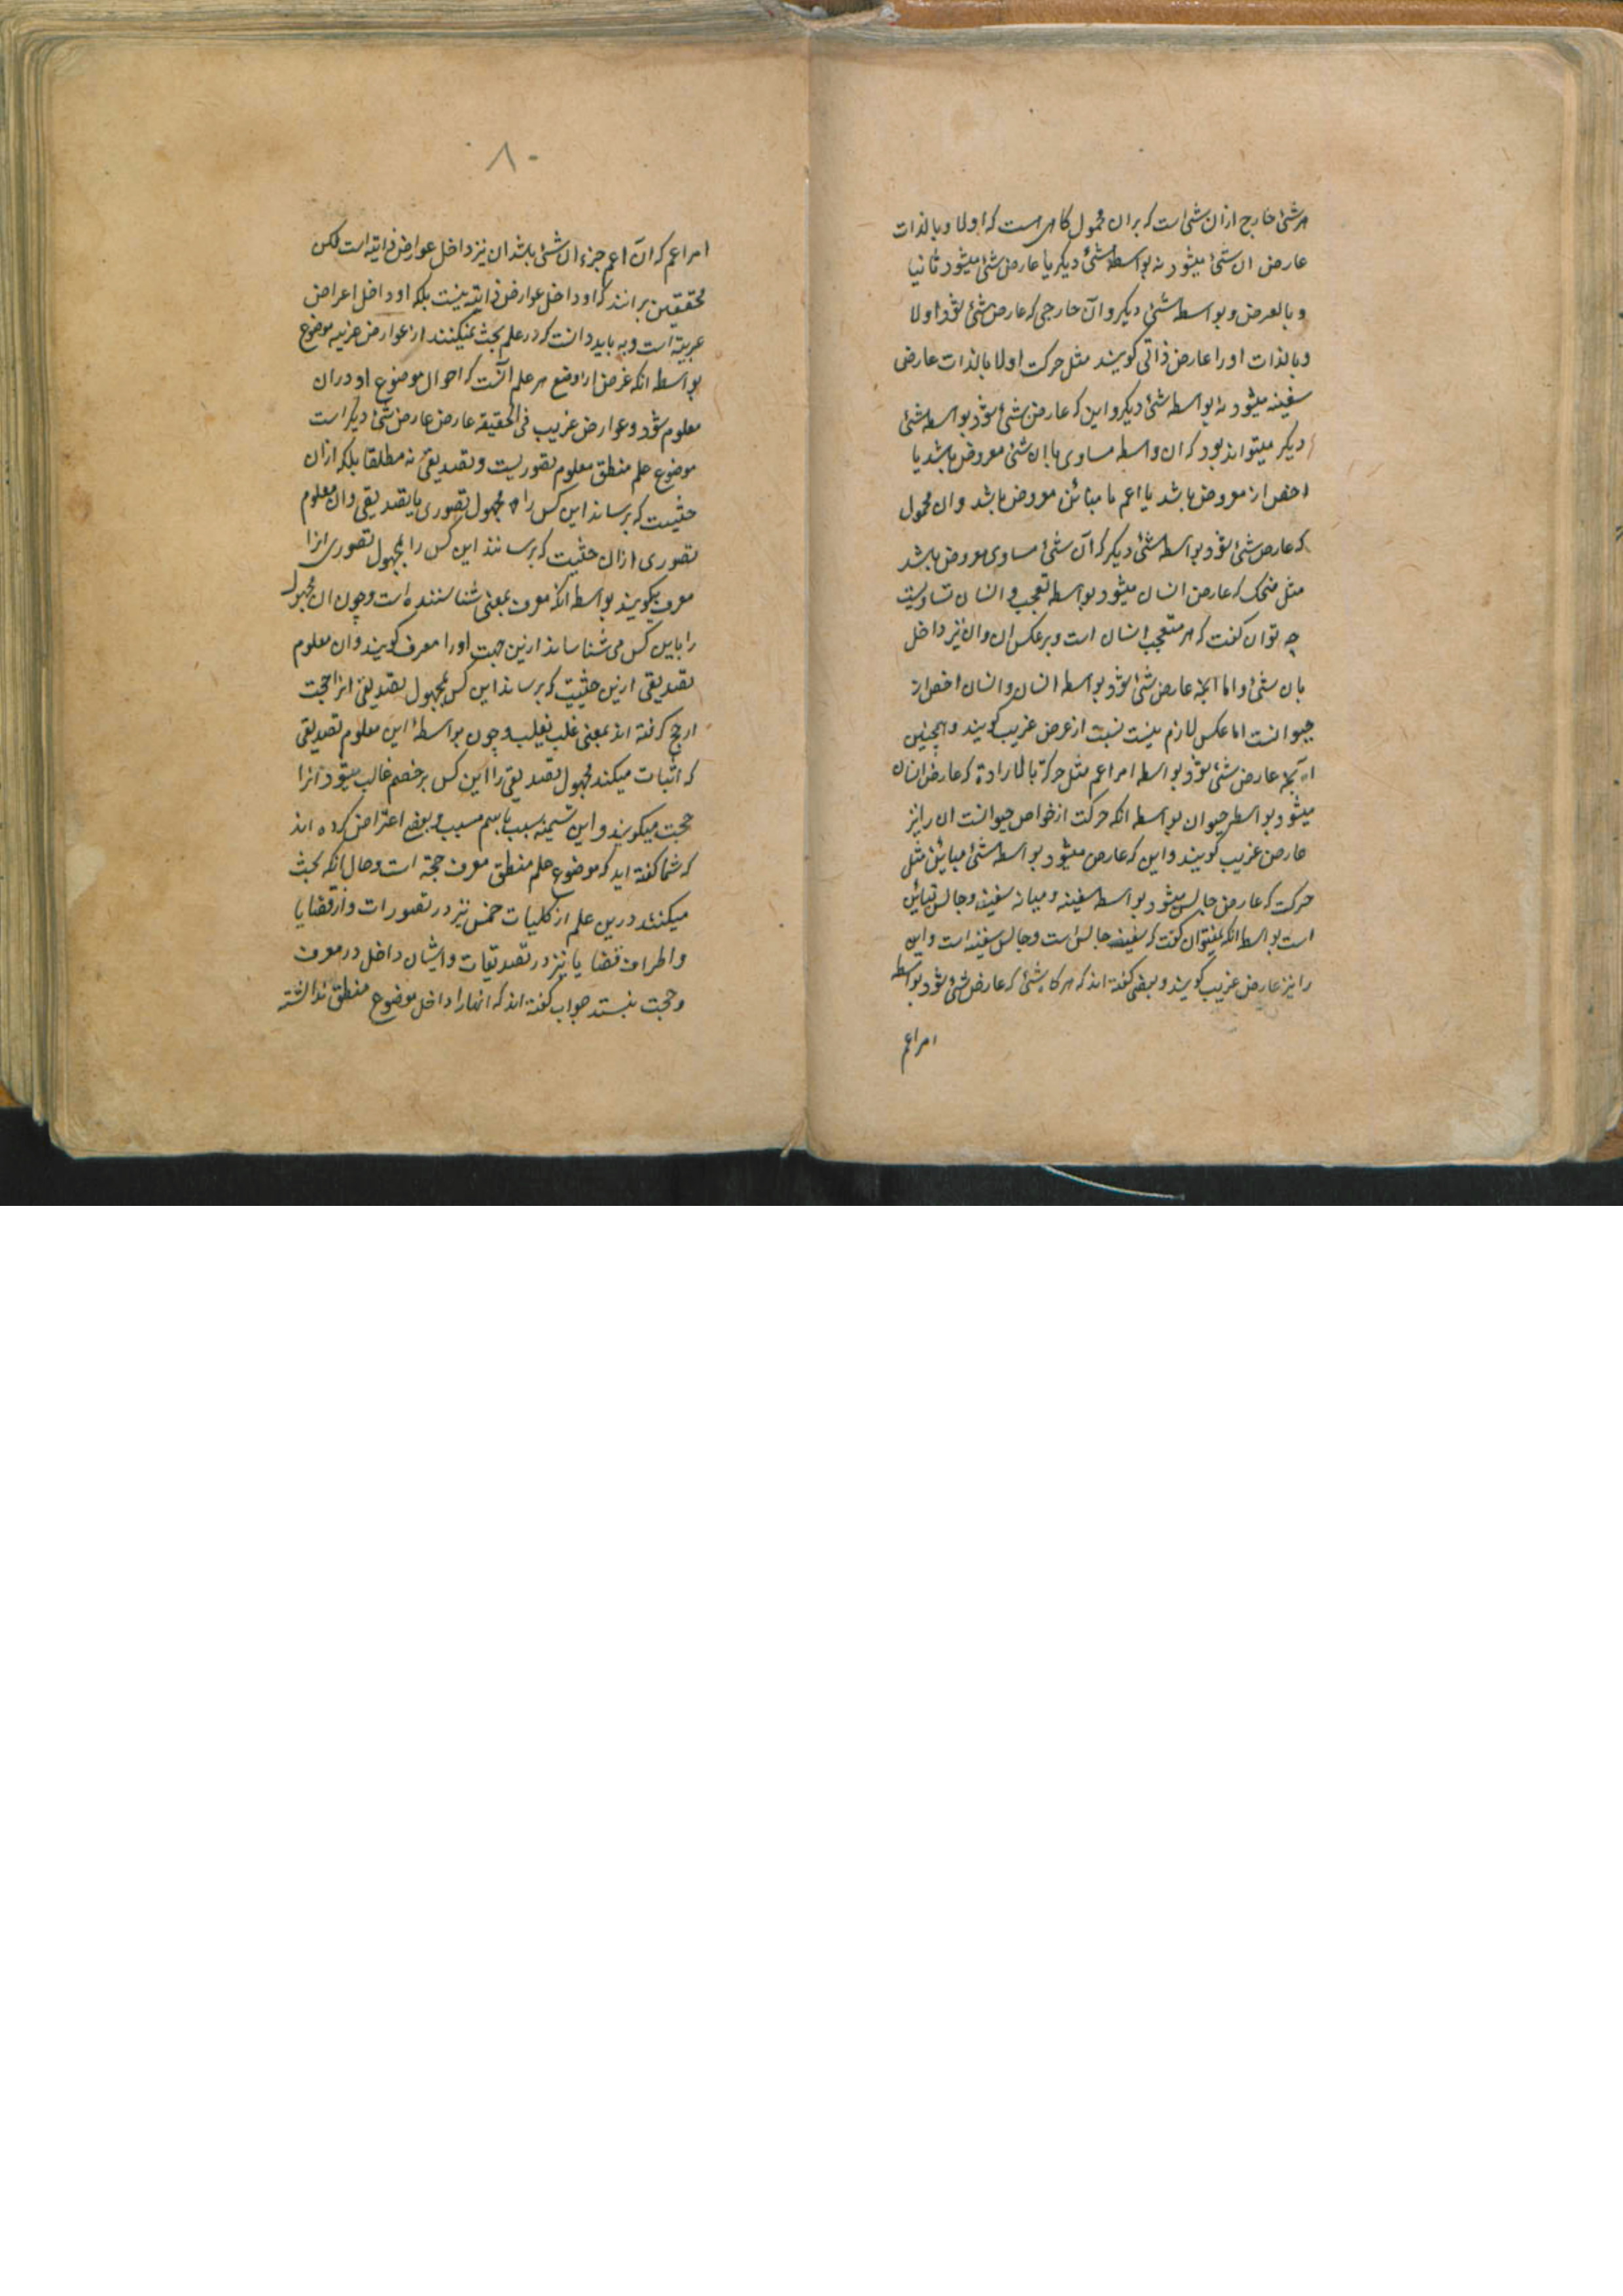 هر شئ خارج ازان شئ است که بران محمول کاهی است که اولا وبالذات
عارض ان شئ میشود نه بواسطه شئ دیکر یا عارض شئ میشود ثانیا
وبالعرض وبواسطه شئ دیکر وآن خارجی که عارض شئ شود اولا
وبالذات اورا عارض ذاتی کویند مثل حرکت اولا بالذات عارض
سفینه میشود نه بواسطه شئ دیکر واین که عارض شئ شود بواسطه شئ
دیکر میتواند بود که ان واسطه مساوی با ان شئ معروض باشد یا
اخص از معروض باشد یا اعم یا مبائن معروض باشد وان محمول
که عارض شئ شود بواسطه شئ دیکر که آن شئ مساوی معروض باشد
مثل ضحک که عارض انسان میشود بواسطه تعجب و انسان تساویست
چه توان کفت که هر متعجب انسان است وبرعکس ان وان نیز داخل
بان شئ واما آنچه عارض شئ شود بواسطه انسان وانسان اخص از
حیوانست اما عکس لازم نیست نسبت از عرض غریب کویند وهمچنین
آنچه عارض شئ شود بواسطه امر اعم مثل حرکة بالارادة که عارض انسان
میشود بواسطه حیوان بواسطه انکه حرکت از خواص حیوانست ان را نیز
عارض غریب کویند واین که عارض میشود بواسطه شئ مبائن مثل
حرکت که عارض جالس میشود بواسطه سفینه ومیانه سفینه وجالس تبائن
است بواسطه انکه نمیتوان کفت که سفینه جالس است وجالس سفینه است واین
را نیز عارض غریب کویند وبعضی کفته اند که هر کاه شئ که عارض شئ شود بواسطه
امر اعم
۸۰
امر اعم که آن اعم جزء ان شئ باشد ان نیز داخل عوارض ذاتیه است لکن
محققین برانند که او داخل عوارض ذاتیه نیست بلکه او داخل اعراض
غریبة است وبباید دانست که در علم بحث نمیکنند از عوارض غریبه موضوع
بواسطه انکه غرض از وضع هر علم آنست که احوال موضوع او دران
معلوم شود وعوارض غریب فی الحقیقة عارض عارض شئ دیکر است
موضوع علم منطق معلوم تصوریست وتصدیقی نه مطلقا بلکه ازان
حثیت که برساند این کس را به مجهول تصوری یا تصدیقی وان معلوم
تصوری ازان حثیت که برسانند این کس را بمجهول تصوری انرا
معرف میکویند بواسطه انکه معرف بمعنی شناسننده است وچون ان مجهول
را باین کس می شناساند ازین جهت اورا معرف کویند وان معلوم
تصدیقی ازین حثیت که برساند این کس بمجهول تصدیقی انرا حجت
ارجح کرفته اند بمعنی غلب یغلب وچون بواسطهٔ این معلوم تصدیقی
که اثبات میکند مجهول تصدیقی را این کس بر خصم غالب میشود انرا
حجت میکویند واین تسمیه سبب باسم مسبب وبعضی اعتراض کرده اند
که شما کفته اید که موضوع علم منطق معرف حجة است وحال انکه بحث
میکنند درین علم از کلیات خمس نیز در تصورات واز قضایا
واطراف قضایا نیز در تصدیقات وایشان داخل در معرف
وحجت نیستند جواب کفته اند که انها را داخل موضوع منطق ندانسته